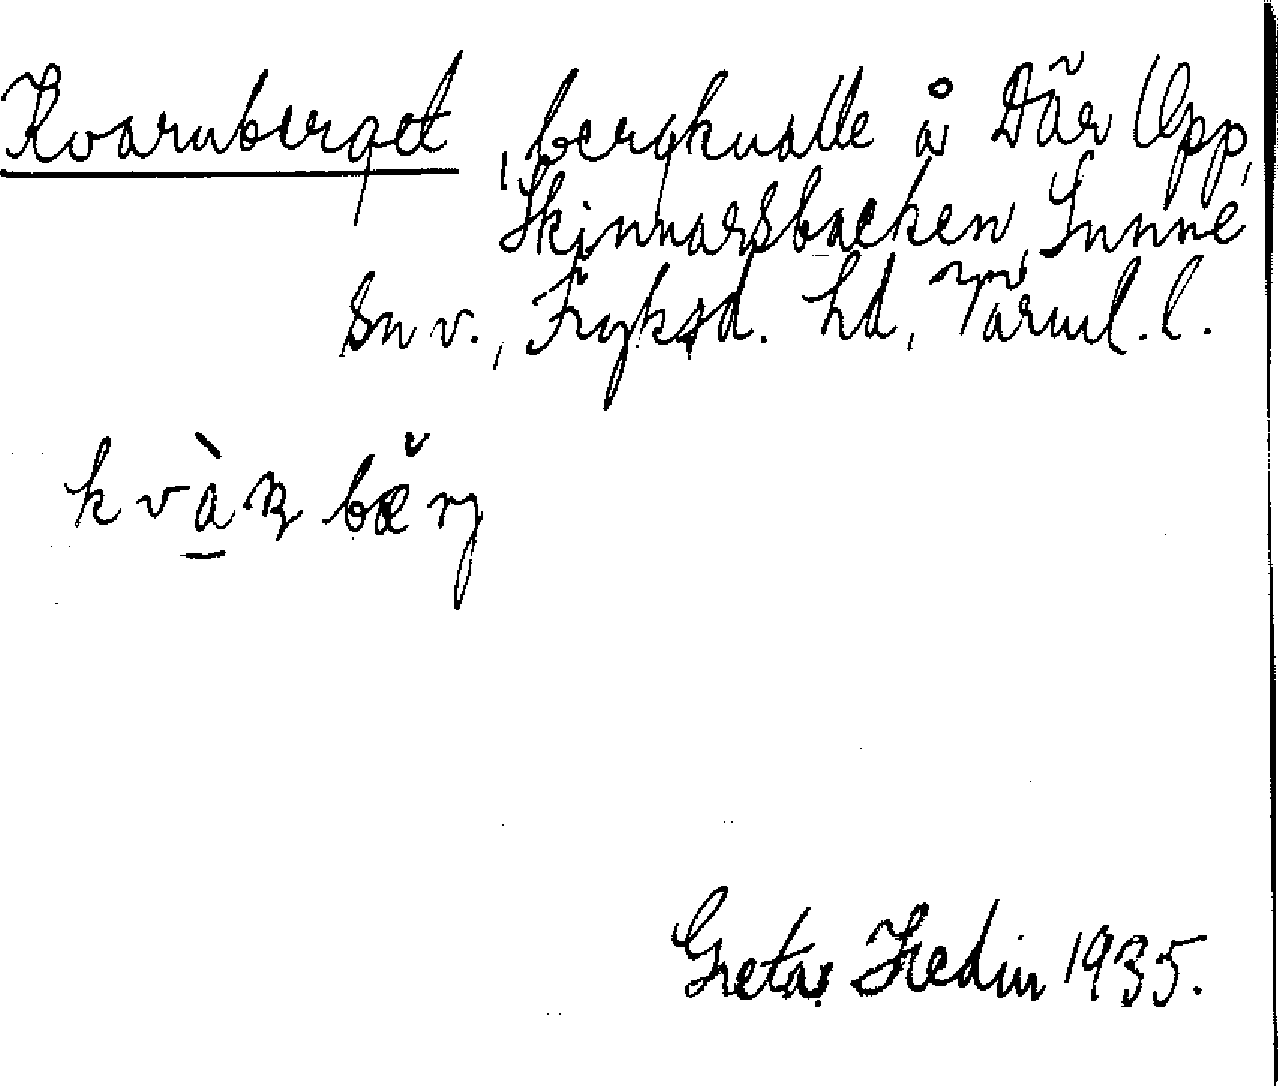 Kvarnberget, bergknalle å Där Opp,
Skinnarsbacken, Sunne
sn v., Fryksd. hd, Värml. l.
kvàɳbæ̆rj
Greta Hedin 1935.